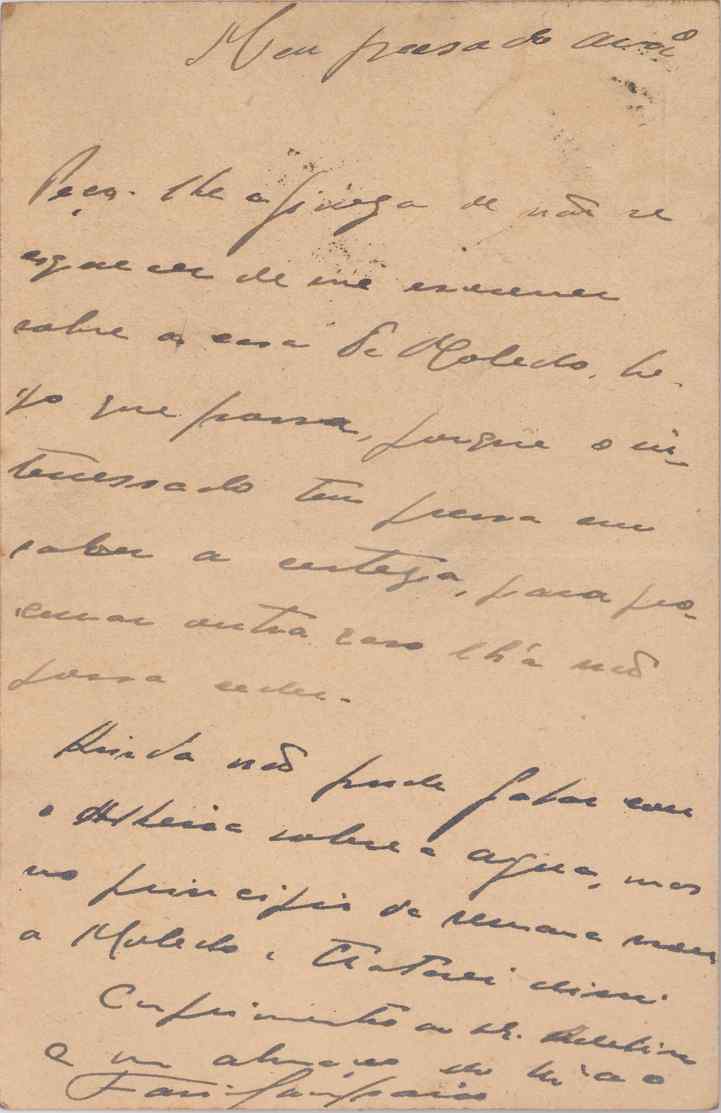 Meu presado avô
Peço-lhe a fineza de não se
esquecer de me escrever
sobre a casa de Moledo, lo-
go que possa, porque o in-
teressado tem pressa em
saber a certeza, para pro-
curar outra caso lh'a não
possa ceder.
Ainda não pude falar com
o sobre a agua, mas
no principio da semana vou
a Moledo e tratarei disso.
Cumprimentos ao Sr.
e um abraço do